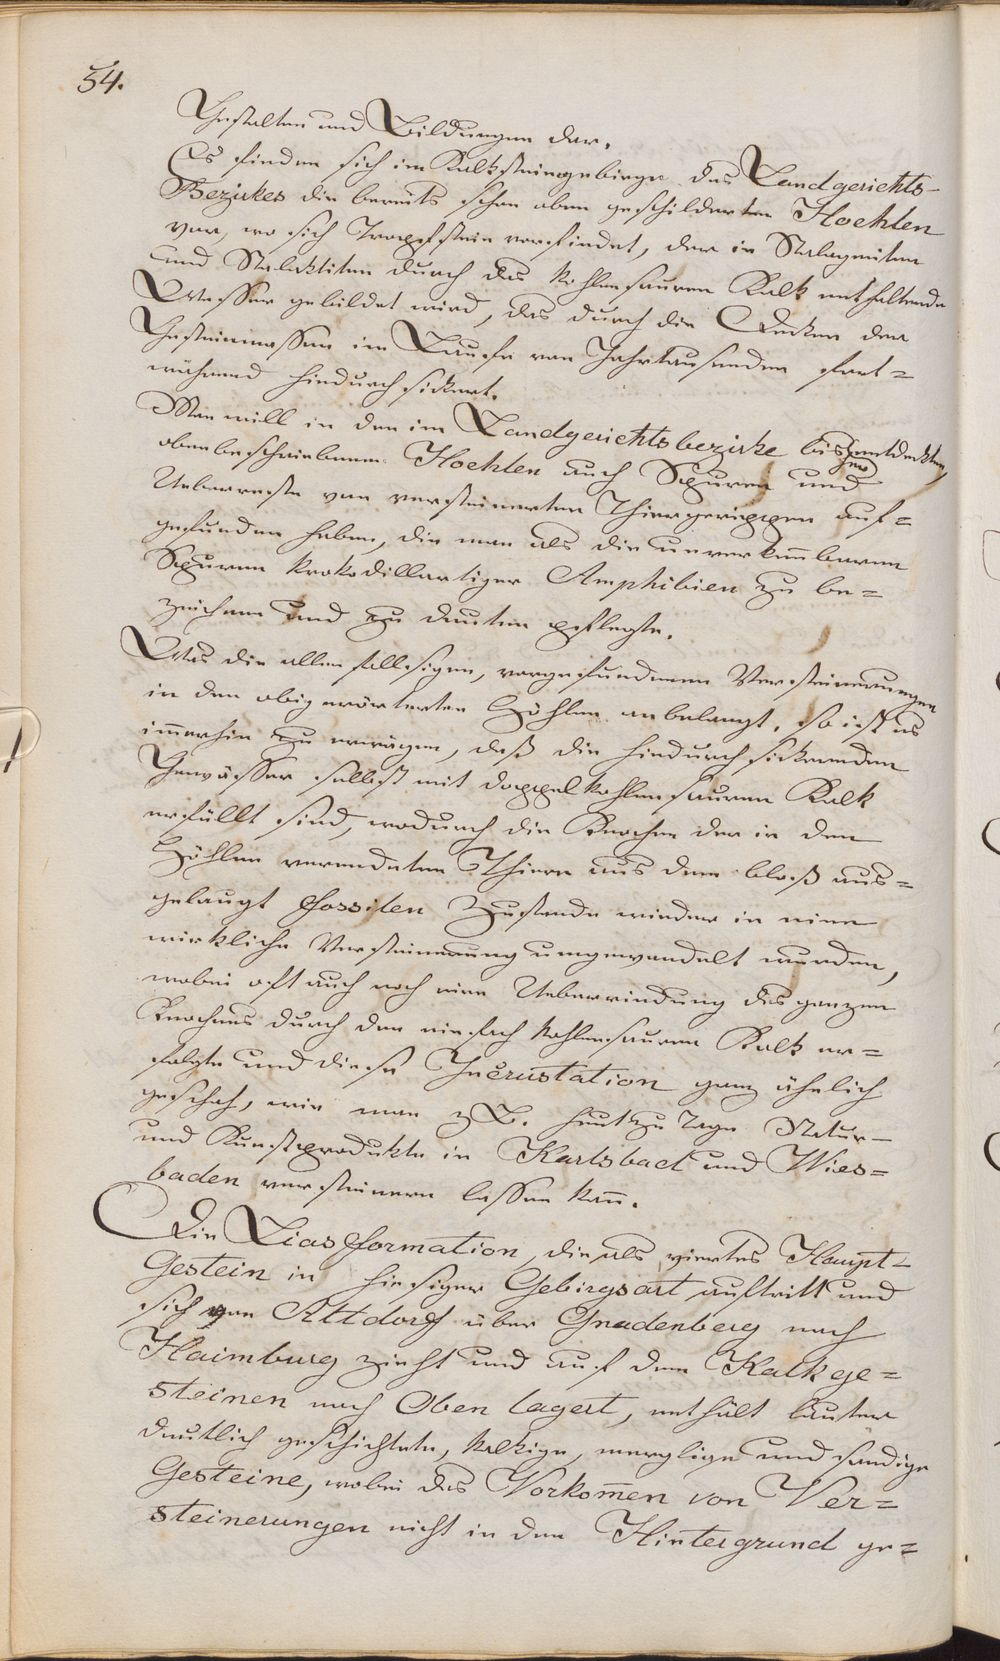 54.
Gestalten und Bildungen dar.
Es finden sich im Kalksteingebirge des Landgerichts-
Bezirkes die bereits schon oben geschilderten Hoehlen
vor, wo sich Tropfstein vorfindet, der in Stalagmiten
und Stalaktiten durch das kohlensauren Kalk enthaltende
Wasser gebildet wird, das durch die Decken der
Gesteinmassen im Laufe von Jahrtausenden fort=
während hindurch sickert.
Man will in den im Landgerichtsbezirke bisher entdeckten,
oben beschriebenen Hoehlen auch Spuren und
Ueberreste von versteinerten Thiergerippen auf=
gefunden haben, die man als die unverkennbaren
Spuren krokodillartiger Amphibien zu be=
zeichnen und zu deuten pflegte.
Was die allenfallsigen, vorgefundenen Versteinerungen
in den obig erörterten Höhlen anbelangt, so ist es
immerhin zu erwägen, daß die hindurch sickernden
Gewässer selbst mit doppelkohlensauren Kalk
erfüllt sind, wodurch die Knochen der in den
Höhlen verendeten Thiere aus dem bloß aus=
gelaugt fossilen Zustande wieder in eine
wirkliche Versteinerung umgewandelt wurden,
wobei oft auch noch eine Ueberrindung des ganzen
Knochens durch den einfach kohlensauren Kalk er=
folgte und diese Incrustation ganz ähnlich
geschah, wie man z. B. heut zu Tage Natur-
und Kunstprodukte in Karlsbad und Wies=
baden versteinern lassen kann.
Die Liasformation, die als viertes Haupt-
Gestein in hiesiger Gebirgsart auftritt und
sich von Altdorf über Gnadenberg nach
Haimburg zieht und auf dem Kalkge=
steinen nach Oben lagert, enthält lauter
deutlich geschichtete, kalkige, merglige und sandige
Gesteine, wobei das Vorkomen von Ver=
steinerungen nicht in den Hintergrund ge=